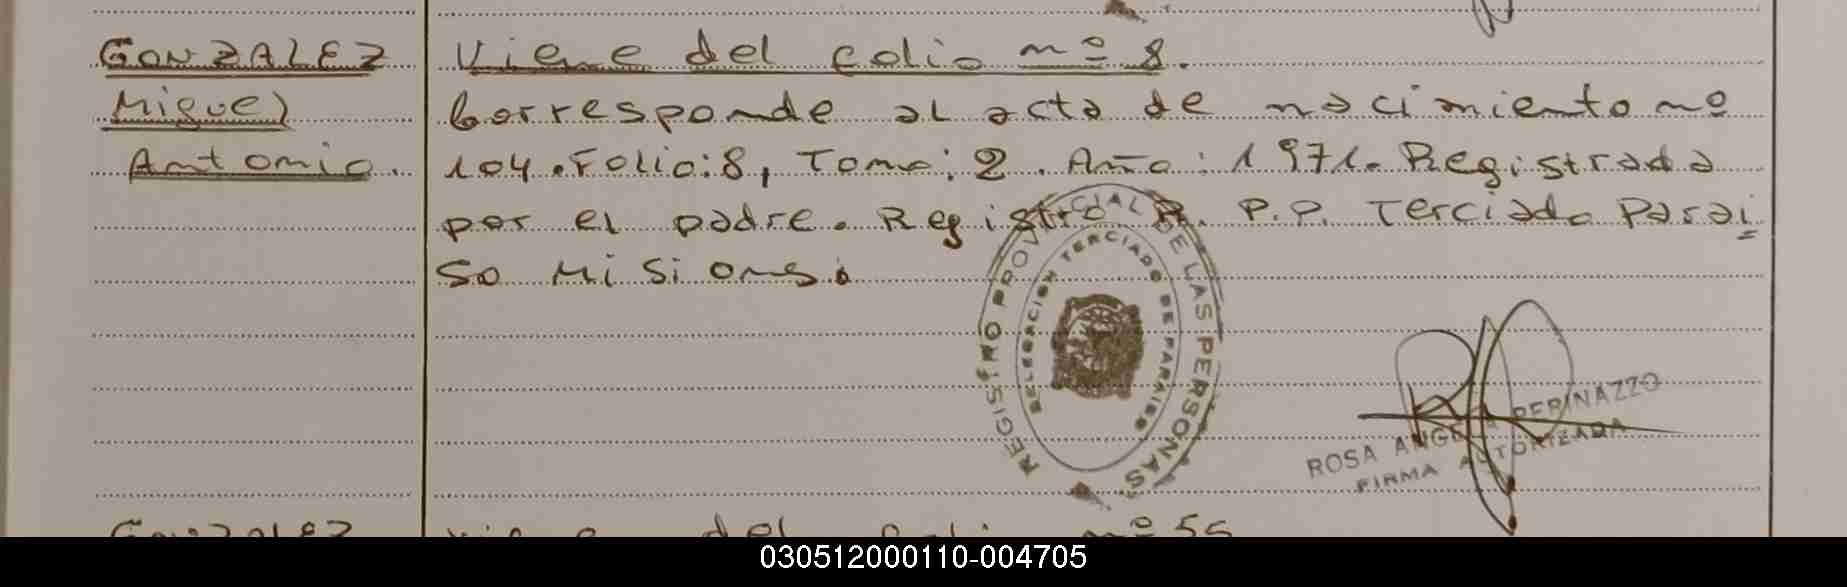 GONZALEZ
Miguel
Antonio.
Viene del folio nº 8.
Corresponde al acta de nacimiento nº
104. Folio: 8, Tomo: 2. Año: 1971. Registrada
por el padre. Registro P. P.P. Terciado Parai
so Misiones.
REGISTRO PROVINCIAL DE LAS PERSONAS
DELEGACION TERCIADO DE PARAISO
ROSA ANGELA PERINAZZO
FIRMA AUTORIZADA
Gonzalez
Viene del folio nº 55
030512000110-004705